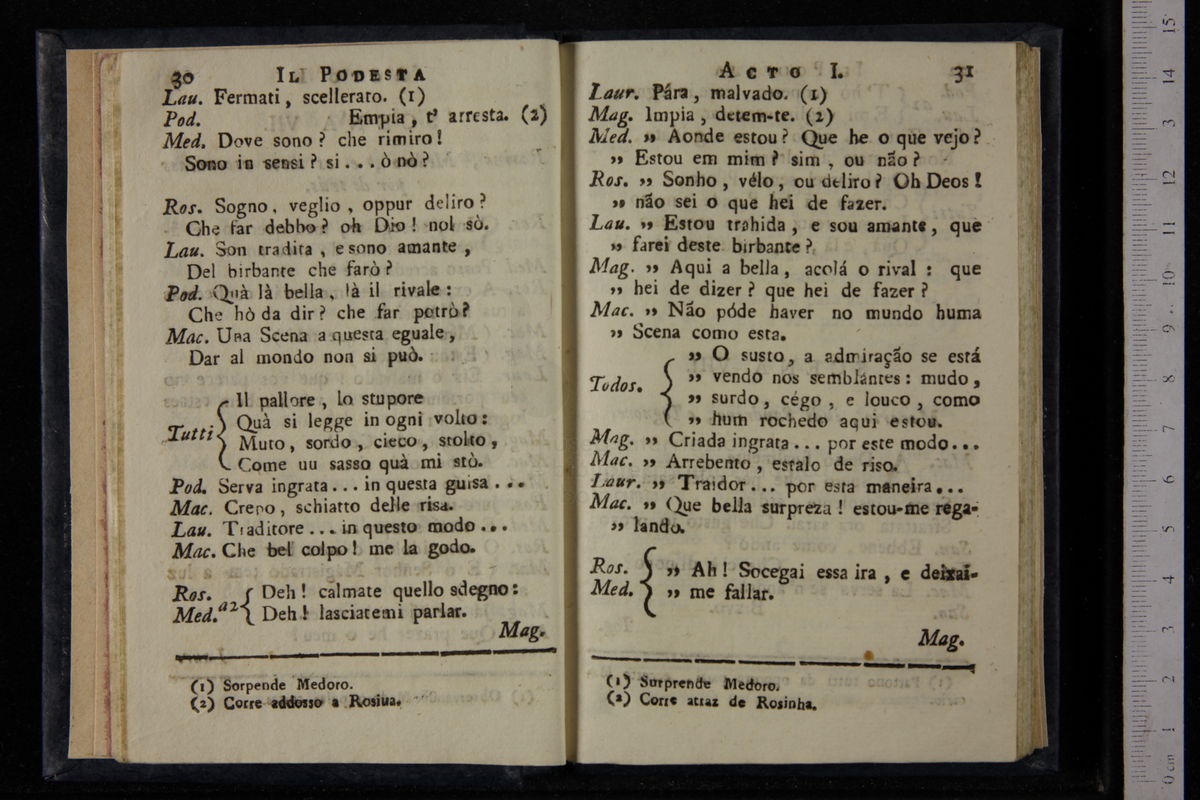 30 IL PODESTA
Lau. Fermati, scellerato. (1)
Pod. Empia, t' arresta. (2)
Med. Dove sono? che rimiro!
Sono in sensi? si... ò nò?
Ros. Sogno, veglio, oppur deliro?
Che far debbo? oh Dio! nol sò.
Lau. Son tradita, e sono amante,
Del birbante che farò?
Pod. Quà là bella, là il rivale:
Che hò da dir? che far potrò?
Mac. Una Scena a questa eguale,
Dar al mondo non si può.
Il pallore, lo stupore
Quà si legge in ogni volto:
Tutti
Muto, sordo, cieco, stolto,
Come uu sasso quà mi stò.
Pod. Serva ingrata... in questa guisa...
Mac. Crepo, schiatto delle risa.
Lau. Traditore... in questo modo...
Mac. Che bel colpo! me la godo.
Ros. Deh! calmate quello sdegno:
Med. a2 Deh! lasciatemi parlar.
Mag.
(1) Sorpende Medoro.
(2) Corre addosso a Rosiua.
ACTO I. 31
Laur. Pára, malvado. (1)
Mag. Impia, detem-te. (2)
Med. ,, Aonde estou? Que he o que vejo?
,, Estou em mim? sim, ou não?
Ros. ,, Sonho, vélo, ou deliro? Oh Deos!
,, não sei o que hei de fazer.
Lau. ,, Estou trahida, e sou amante, que
,, farei deste birbante?
Mag. ,, Aqui a bella, acolá o rival: que
,, hei de dizer? que hei de fazer?
Mac. ,, Não póde haver no mundo huma
,, Scena como esta.
,, O susto, a admiração se está
Todos. ,, vendo nos semblántes: mudo,
,, surdo, cégo, e louco, como
,, hum rochedo aqui estou.
Mag. ,, Criada ingrata... por este modo...
Mac. ,, Arrebento, estalo de riso.
Laur. ,, Traidor... por esta maneira...
Mac. ,, Que bella surpreza! estou-me rega-
,, lando.
Ros. ,, Ah! Socegai essa ira, e deixai-
Med. ,, me fallar.
Mag.
(1) Surprende Medoro.
(2) Corre atraz de Rosinha.
0 cm 1 2 3 4 5 6 7 8 9 10 11 12 13 14 15